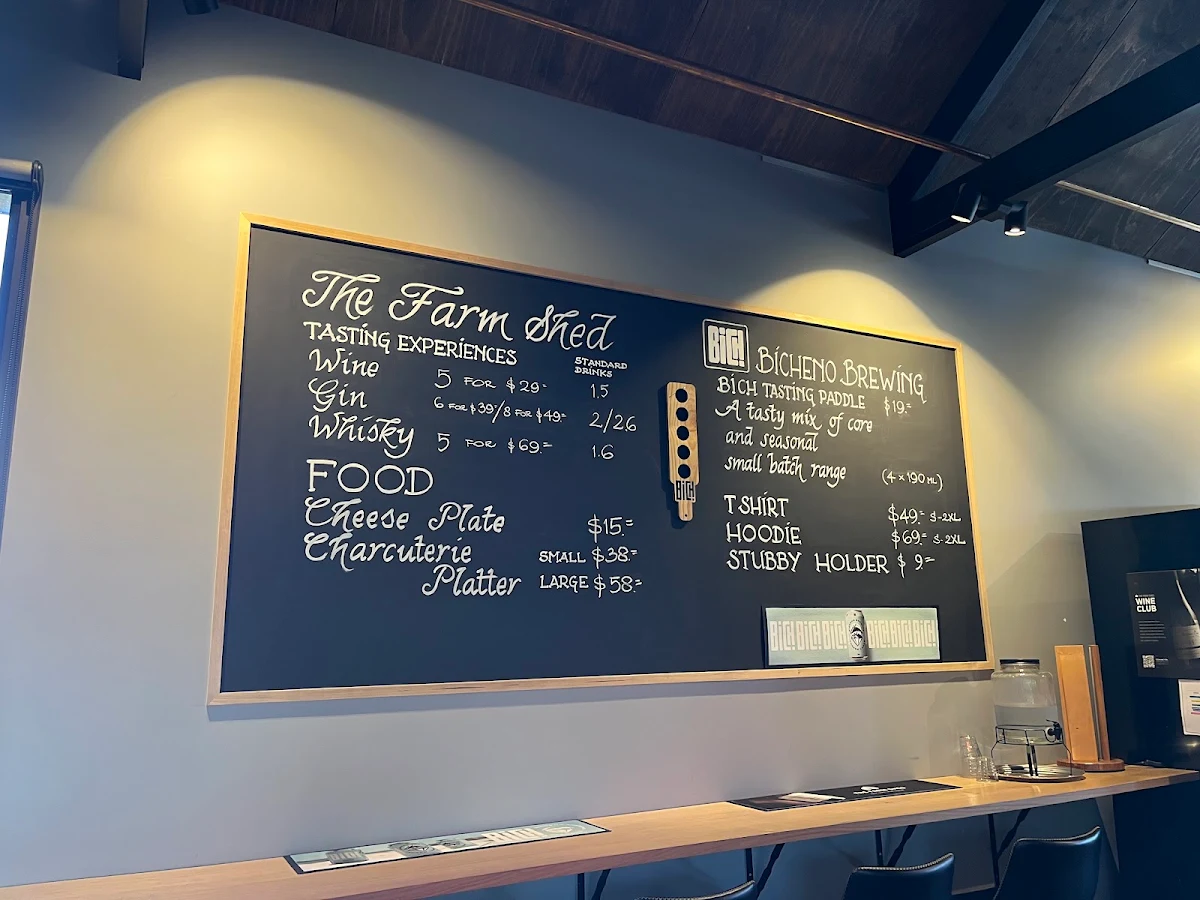 The Farm Shed
TASTING EXPERIENCES
STANDARD
DRINKS
Wine 5 FOR $29.- 1.5
Gin 6 FOR $39.-/8 FOR $49.- 2/2.6
Whisky 5 FOR $69.- 1.6
FOOD
Cheese Plate $15.-
Charcuterie SMALL $38.-
Platter LARGE $58.-
BiCH!
BICH!
BICHENO BREWING
BICH TASTING PADDLE $19.-
A tasty mix of core
and seasonal
small batch range (4 x 190 ML)
T SHIRT $49.- S-2XL
HOODIE $69.- S-2XL
STUBBY HOLDER $9.-
BiCH! BiCH! BiCH! BiCH! BiCH!
WINE
CLUB